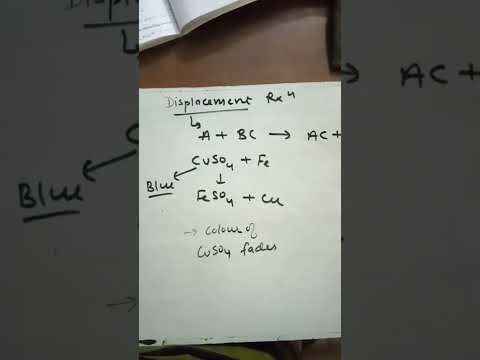 Displacement Rxⁿ
A + BC → AC +
CuSO₄ + Fe
Blue
↓
FeSO₄ + Cu
→ Colour of
CuSO₄ fades